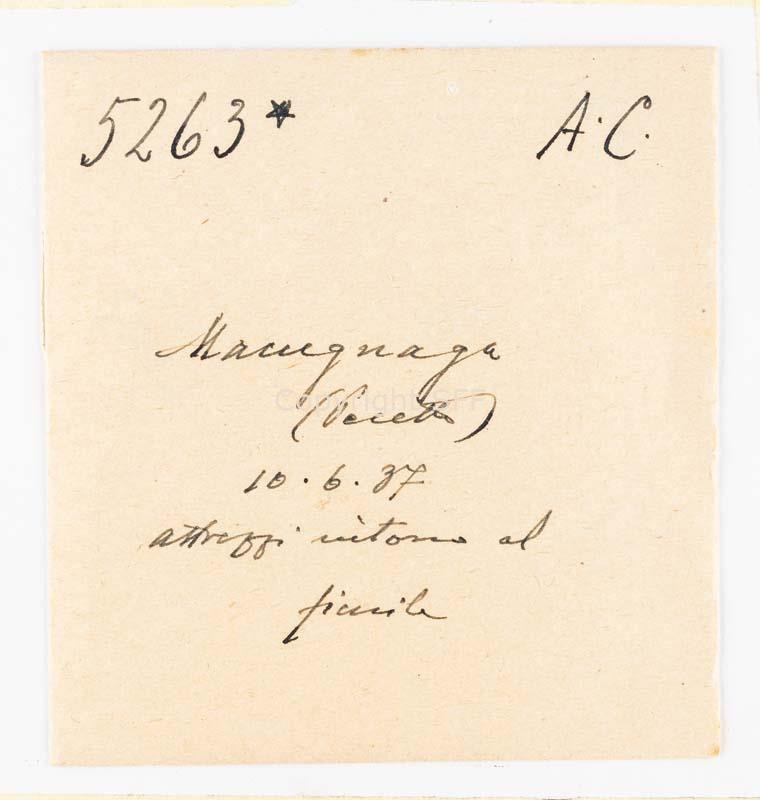 5263* A.C.
Macugnaga
(Pecetto)
10.6.37
attrezzi intorno al
fienile